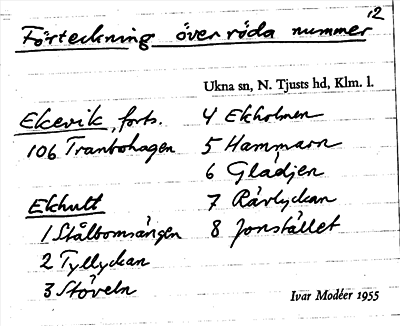 12
Förteckning över röda nummer
Ukna sn, N. Tjusts hd, Klm. l.
Ekevik, forts.
106 Tranbohagen
Ekhult
1 Stålbomsängen
2 Tyllyckan
3 Stöveln
4 Ekholmen
5 Hammarn
6 Glädjen
7 Rävlyckan
8 Jonstället
Ivar Modéer 1955